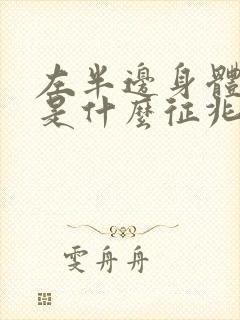 左半邊身體
是什麼征兆
雯舟舟